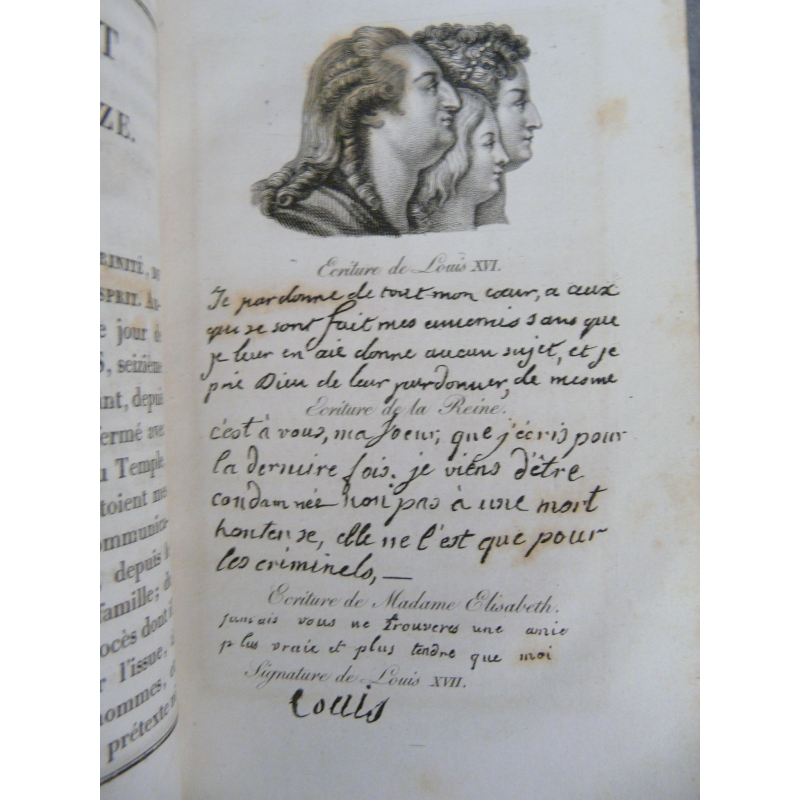 T
ZE.
RINITÉ, DU
SPRIT. Au-
e jour de
S, seizième
ant, depuis
fermé avec
u Temple
toient me
ommunica-
, depuis le
famille; de
ocès dont il
r l'issue,
hommes, e
prétexte ni
Ecriture de Louis XVI.
Je pardonne de tout mon cœur, a ceux
qui se sont fait mes ennemis sans que
je leur en aie donne aucun sujet, et je
prie Dieu de leur pardonner, de mesme
Ecriture de la Reine.
c'est à vous, ma Soeur, que j'écris pour
la derniere fois. je viens d'être
condamnée non pas à une mort
honteuse, elle ne l'est que pour
les criminels, —
Ecriture de Madame Elisabeth.
jamais vous ne trouveres une amie
plus vraie et plus tendre que moi
Signature de Louis XVII.
Louis